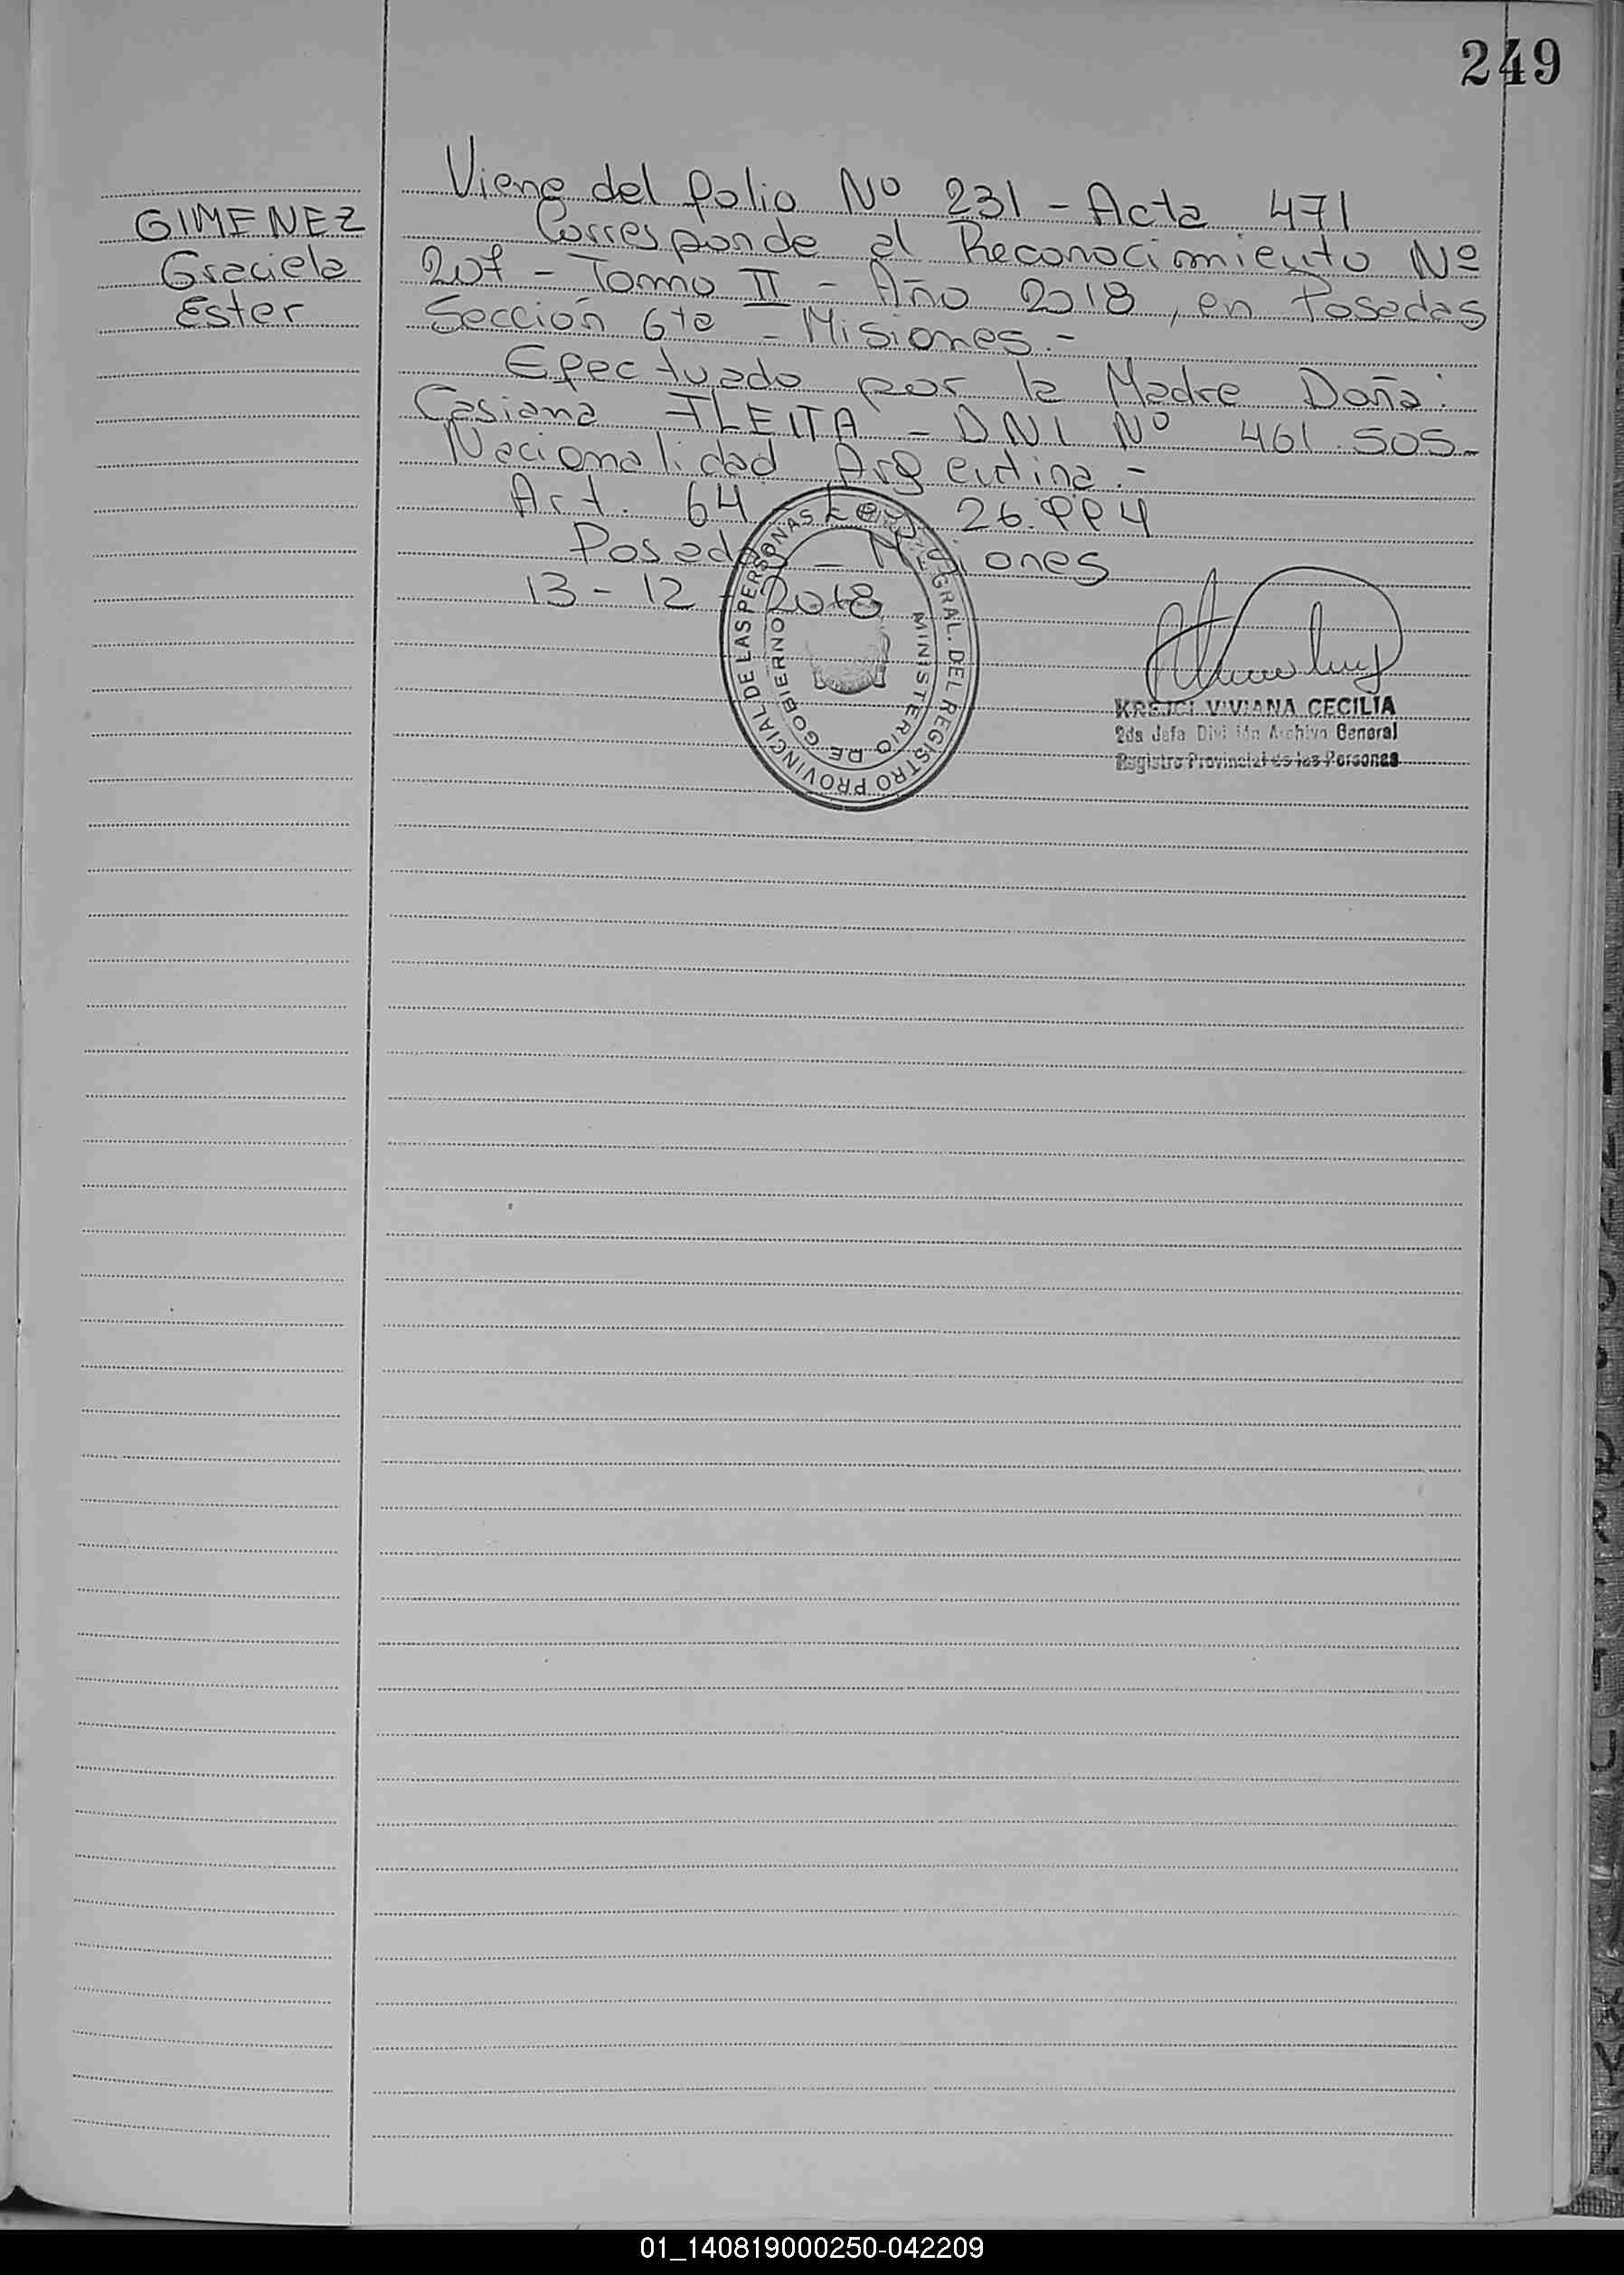 249
GIMENEZ
Graciela
Ester
Viene del folio Nº 231 - Acta 471
Corresponde al Reconocimiento Nº
207 - Tomo II - Año 2018, en Posadas
Sección 6ta - Misiones.-
Efectuado por la Madre Doña:
Casiana FLEITA - DNI Nº 461.505-
Nacionalidad Argentina.-
Art. 64 Ley 26.994
Posadas - Misiones
13 - 12 - 2018
GRAL. DEL REGISTRO PROVINCIAL DE LAS PERSONAS
MINISTERIO DE GOBIERNO
KREJCI VIVIANA CECILIA
2da Jefa División Archivo General
Registro Provincial de las Personas
01_140819000250-042209